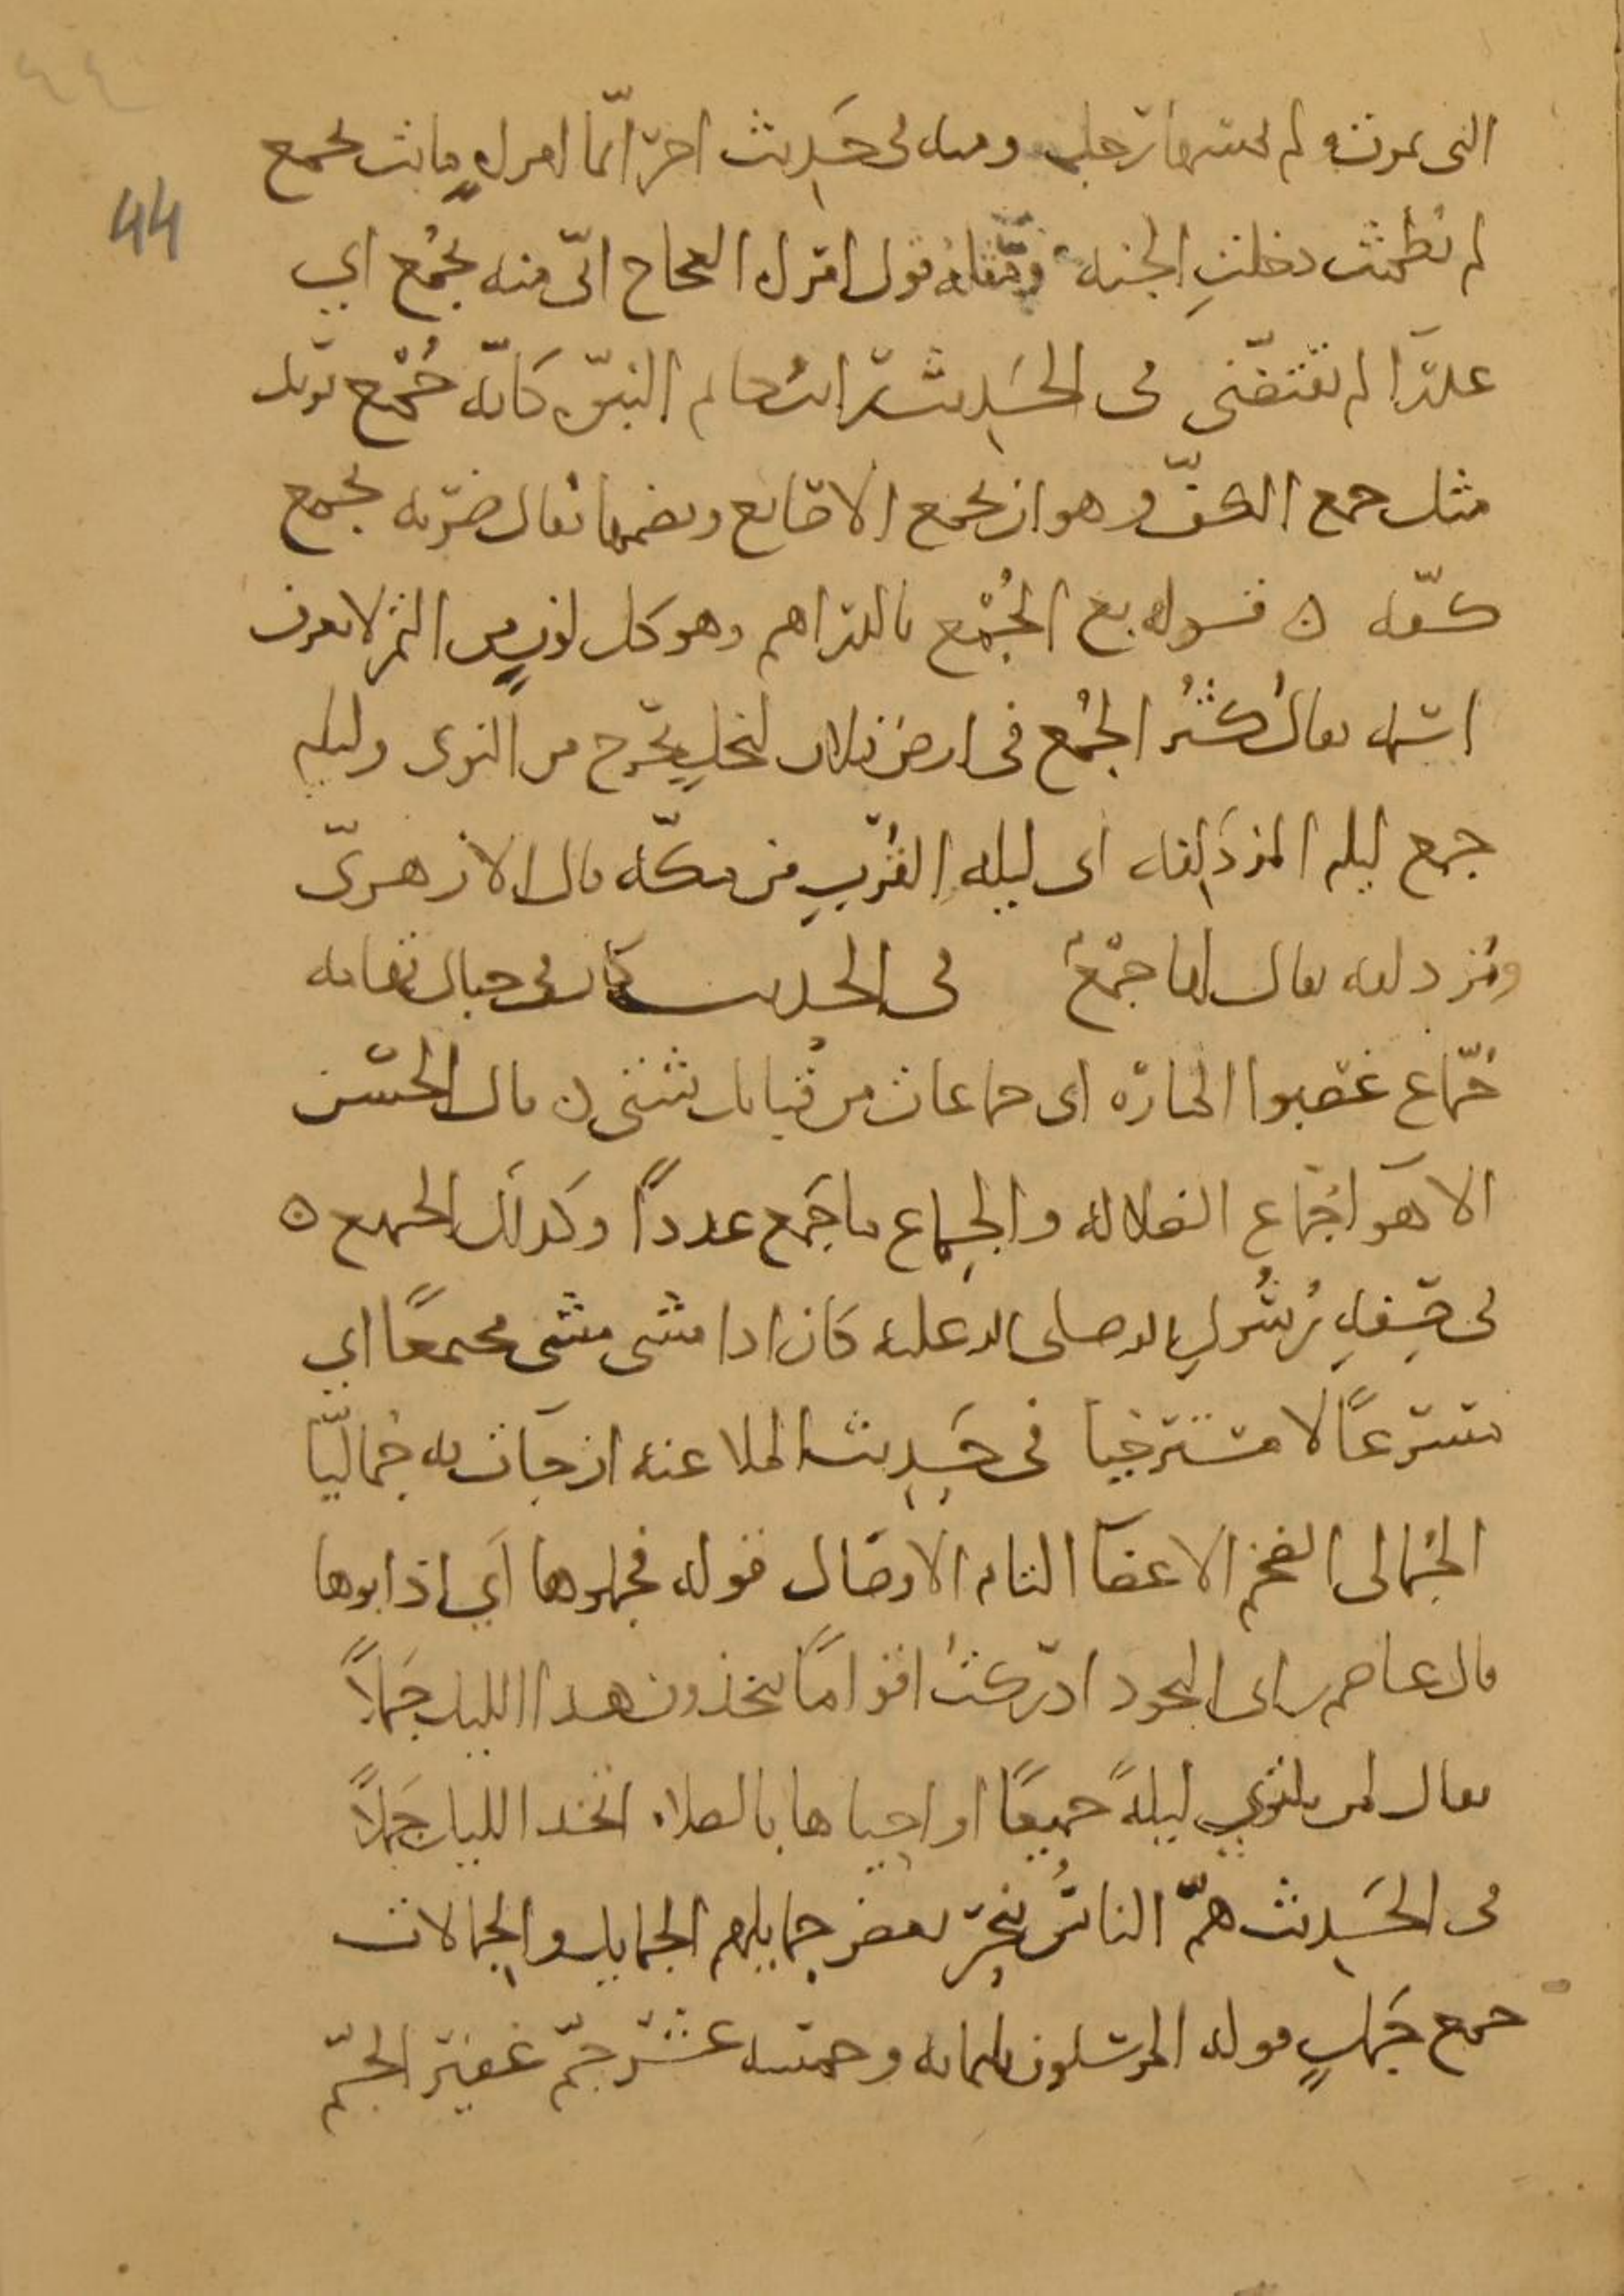 44
التى تموت و لم يمسها رجل ومنه فى حَدِيث اخر ايّما امراهٍ ماتت بجمع
لم تطمث دخلتِ الجنه ومنه قول امراه العجاج انّى منه بجُمْع اي
عذرَا لم يفتضّنى فى الحَدِيث رايت خاتم النبوّه كانّه جُمْع يريد
مثل جمع الكفّ و هو ان يجمع الاصابع ويضمها يقال ضربه بجمع
كفّه ه قوله بع الجُمْع بالدراهم وهو كل لونٍ من التمر لا يعرف
اسمه يقال كثُرُ الجُمع فى ارض فلان لنخلٍ يخرج من النوى وليله
جمع ليله المزدَلِفه اى ليله القُربِ من مكّه قال الازهرىّ
ومزدلفه يقال لها جمْعٌ فى الحديث كان فى جبال تهامه
جُمّاع غصبوا المارّه اى جماعات من قبايل شتى ه قال الحسن
الاهوَا جُمّاع الضلاله والجِماع ما جَمع عدداً وكذلك الجميع ه
فى صِفهِ رُسُولِ الله صلى الله عليه كان اذا مشى مشى مجتمعًا اي
مسرعًا لا مسترخيا فى حَدِيث الملاعنه ان جات به جُماليّا
الجُمالى الضخم الاعضَا التام الاوصَال قوله فجملوها اَي اذابوها
قال عاصم بن ابى النجود ادركتُ اقوامًا يتخذون هذا الليل جَملاً
يقال لمن سرى ليلهً جميعًا او احياها بالصلاه اتخذ الليل جَملاً
فى الحَدِيث همّ الناسُ بنحرِ بعض جمايلهم الجمايل والجِمالات
جمع جَملٍ قوله المرسلون ثلثمايه وخمسه عشر جمّ غفير الجمّ